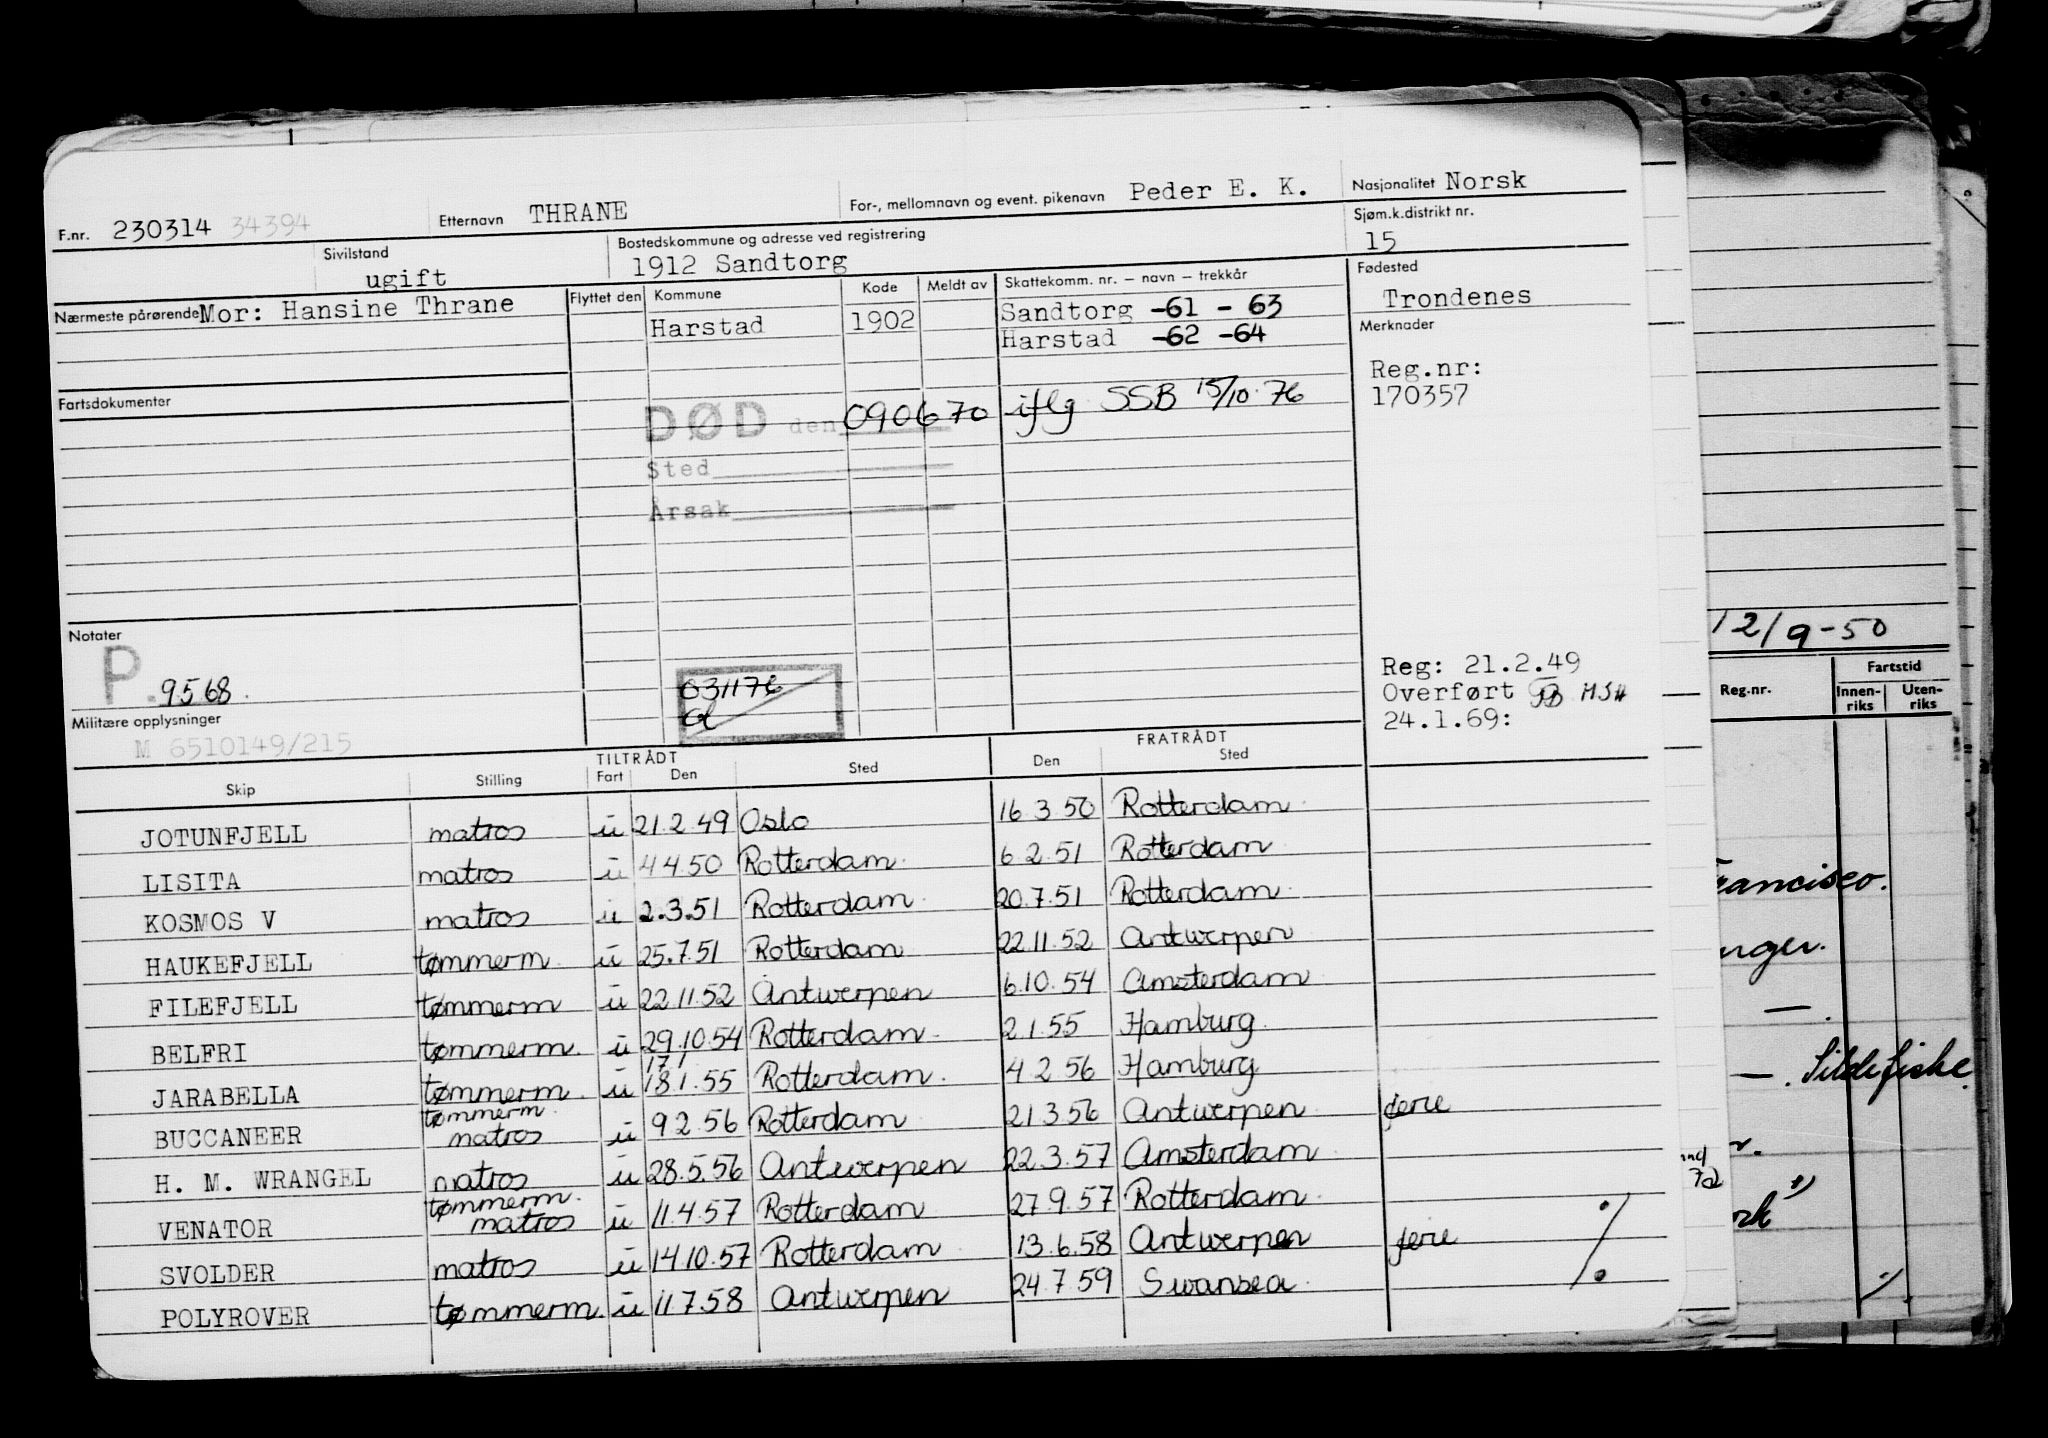 F.nr. 230314 34394 Etternavn THRANE For-, mellomnavn og event. pikenavn Peder E. K. Nasjonalitet Norsk
Sivilstand ugift Bostedskommune og adresse ved registrering 1912 Sandtorg Sjøm.k.distrikt nr. 15
Nærmeste pårørende Mor: Hansine Thrane Flyttet den Kommune Kode Meldt av Skattekomm. nr. – navn – trekkår Fødested Trondenes
Harstad 1902 Sandtorg -61 - 63
Harstad -62 -64
Merknader
Reg.nr:
170357
Fartsdokumenter
DØD den 090670 iflg SSB 15/10-76
Sted
Årsak
Notater
P. 9568.
031176
Reg: 21.2.49
Overført
24.1.69:
Militære opplysninger
M 6510149/215
TILTRÅDT FRATRÅDT
Skip Stilling Fart Den Sted Den Sted
JOTUNFJELL matros u 21.2.49 Oslo 16.3.50 Rotterdam
LISITA matros u 4.4.50 Rotterdam 6.2.51 Rotterdam
KOSMOS V matros u 2.3.51 Rotterdam 20.7.51 Rotterdam
HAUKEFJELL tømmerm. u 25.7.51 Rotterdam 22.11.52 Antwerpen
FILEFJELL tømmerm u 22.11.52 Antwerpen 6.10.54 Amsterdam
BELFRI tømmerm. u 29.10.54 Rotterdam 2.1.55 Hamburg
17/1
JARABELLA tømmerm. u 18.1.55 Rotterdam 4.2.56 Hamburg
tømmerm.
BUCCANEER matros u 9.2.56 Rotterdam 21.3.56 Antwerpen ferie
H. M. WRANGEL matros u 28.5.56 Antwerpen 22.3.57 Amsterdam
tømmerm.
VENATOR matros u 11.4.57 Rotterdam 27.9.57 Rotterdam
SVOLDER matros u 14.10.57 Rotterdam 13.6.58 Antwerpen ferie ./.
POLYROVER tømmerm. u 11.7.58 Antwerpen 24.7.59 Swansea
12/9-50
Fartstid
Reg.nr. Innen-riks Uten-riks
Francisco.
Sildefiske